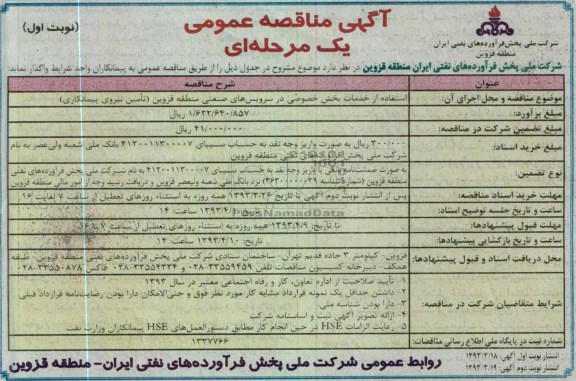 آگهی مناقصه عمومی
یک مرحله‌ای
(نوبت اول)
شرکت ملی پخش فرآورده‌های نفتی ایران
منطقه قزوین
شرکت ملی پخش فرآورده‌های نفتی ایران منطقه قزوین در نظر دارد موضوع مشروح در جدول ذیل را از طریق مناقصه عمومی به پیمانکاران واجد شرایط واگذار نماید.
عنوان
شرح مناقصه
موضوع مناقصه و محل اجرای آن:
استفاده از خدمات بخش خصوصی در سرویس‌های صنعتی منطقه قزوین (تأمین نیروی پیمانکاری)
مبلغ برآورد:
۱/۶۳۲/۶۴۰/۸۵۷ ریال
مبلغ تضمین شرکت در مناقصه:
۴۱/۰۰۰/۰۰۰ ریال
مبلغ خرید اسناد:
۳۰۰/۰۰۰ ریال به صورت واریز وجه نقد به حساب سیبای ۴۱۲۰۰۱۱۳۰۰۰۰۷ بانک ملی شعبه ولی‌عصر به نام شرکت ملی پخش فرآورده‌های نفتی منطقه قزوین
نوع تضمین:
به صورت ضمانت‌نامه بانکی یا واریز وجه نقد به حساب سیبای ۴۱۲۰۰۱۱۳۰۰۰۰۷ شرکت ملی پخش فرآورده‌های نفتی منطقه قزوین نزد بانک ملی شعبه ولیعصر قزوین و دریافت رسید وجه از امور مالی منطقه قزوین
مهلت خرید اسناد مناقصه:
پس از انتشار نوبت دوم آگهی تا تاریخ ۱۳۹۳/۳/۲۶ همه روزه به استثناء روزهای تعطیل از ساعت ۷ لغایت ۱۶
ساعت و تاریخ جلسه توضیح اسناد:
ساعت: ۱۴
مهلت قبول پیشنهادها:
تا تاریخ: ۱۳۹۳/۴/۹ همه‌روزه به استثناء روزهای تعطیل از ساعت ۷ تا ۱۶
ساعت و تاریخ بازگشایی پیشنهادها:
تاریخ: ۱۳۹۳/۴/۱۰ ساعت: ۱۴
محل دریافت اسناد و قبول پیشنهادها:
قزوین- کیلومتر ۳ جاده قدیم تهران- ساختمان ستادی شرکت ملی پخش فرآورده‌های نفتی منطقه قزوین- طبقه همکف- دبیرخانه کمیسیون مناقصات تلفن ۳۳۵۵۹۴۵۹-۰۲۸ و ۳۳۵۵۴۳۳۴-۰۲۸ فاکس ۳۳۵۵۰۸۷۸-۰۲۸
شرایط متقاضیان شرکت در مناقصه:
۱. تأیید صلاحیت از اداره تعاون، کار و رفاه اجتماعی معتبر در سال ۱۳۹۳
۲. داشتن حداقل یک نمونه قرارداد مشابه کار مورد نظر فوق و حتی‌الامکان دارا بودن رضایت‌نامه قرارداد قبلی
۳. دارا بودن شناسه ملی.
۴. ارائه تصویر آگهی ثبت و اساسنامه شرکت
۵. رعایت الزامات HSE در حین انجام کار مطابق دستورالعمل‌های HSE پیمانکاران وزارت نفت
شماره ثبت در پایگاه ملی اطلاع رسانی مناقصات:
۱۳۳۷۷۶۶
انتشار نوبت اول آگهی: ۱۳۹۳/۳/۱۸
انتشار نوبت دوم آگهی: ۱۳۹۳/۳/۱۹
روابط عمومی شرکت ملی پخش فرآورده‌های نفتی ایران- منطقه قزوین